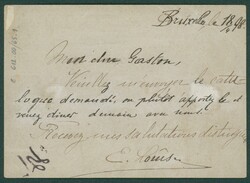 Bruxelles le 18/2 98.
Mon cher Gaston,
Veuillez m'envoyer le cata-
logue demandé, ou plutôt apportez le et
venez diner demain avec nous.
Recevez mes salutations distinguées
E.